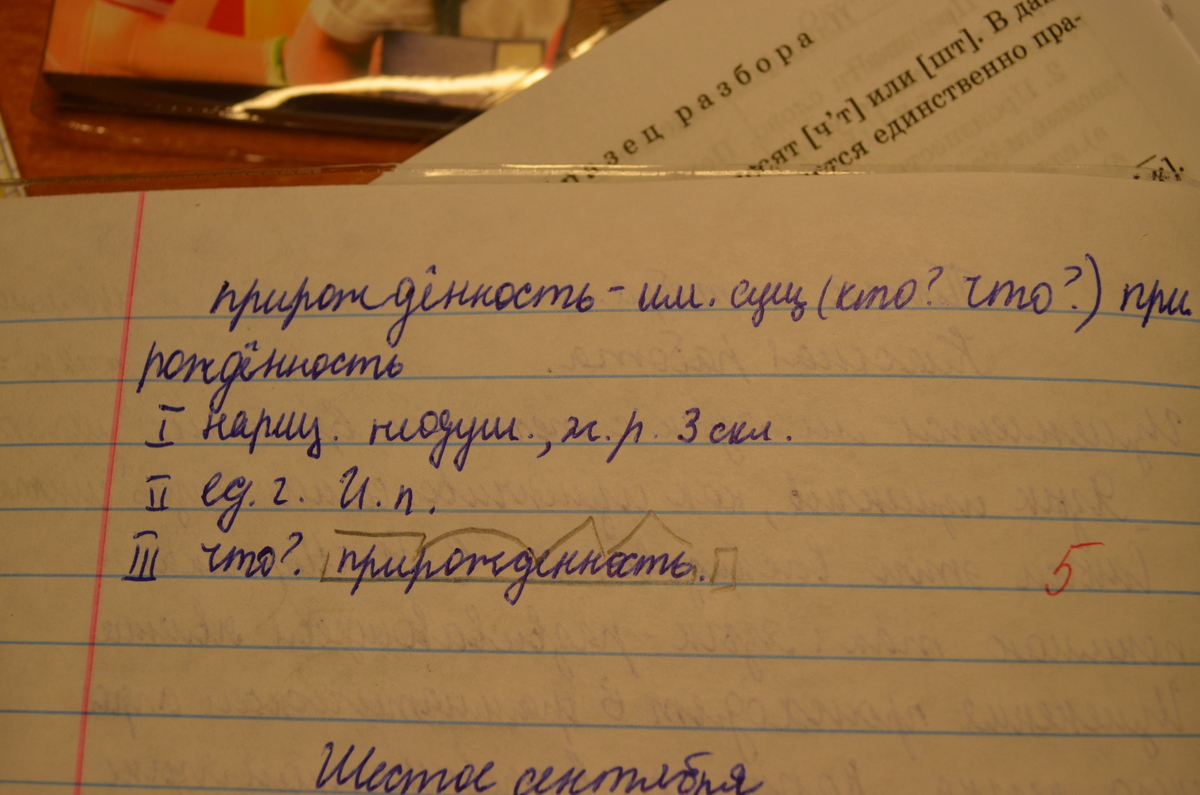 разец разбора
сят [ч'т] или [шт]. В да
тся единственно пра-
прирождённость - им. сущ (кто? что?) при
рождённость
I нариц. неодуш., ж. р. 3 скл.
II ед. ч. И. п.
III что? прирожденность.
5
Шестое сентября